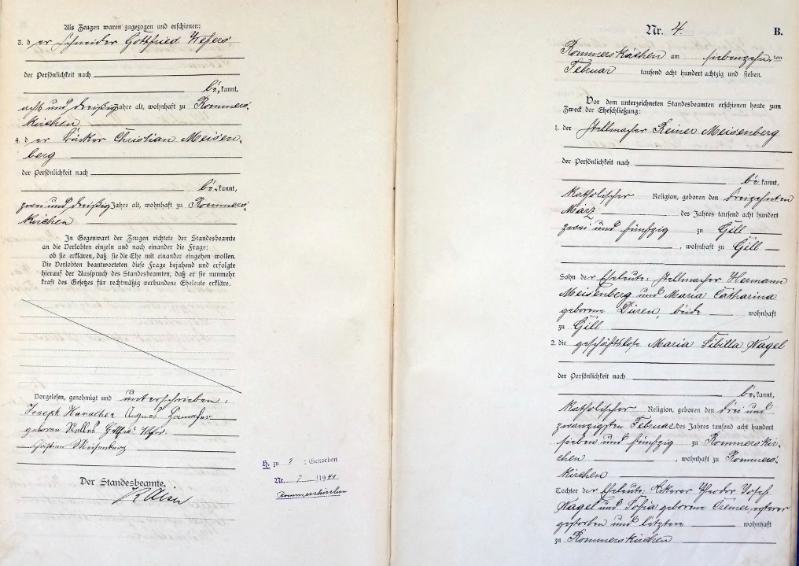 Als Zeugen waren zugezogen und erschienen:
3. d er Schneider Gottfried
der Persönlichkeit nach
be kannt,
acht und dreißig Jahre alt, wohnhaft zu Rommers-
kirchen
4. d er Christian Meisen-
berg
der Persönlichkeit nach
be kannt,
zwei und dreißig Jahre alt, wohnhaft zu Rommers-
kirchen
In Gegenwart der Zeugen richtete der Standesbeamte
an die Verlobten einzeln und nach einander die Frage:
ob sie erklären, daß sie die Ehe mit einander eingehen wollen.
Die Verlobten beantworteten diese Frage bejahend und erfolgte
hierauf der Ausspruch des Standesbeamten, daß er sie nunmehr
kraft des Gesetzes für rechtmäßig verbundene Eheleute erkläre.
Vorgelesen, genehmigt und unterschrieben:
Joseph Agnes
geboren
Christian Meisenberg
Der Standesbeamte.
H. zu
Nr.
Rommerskirchen
Nr. 4 B.
Rommerskirchen am siebenzehn ten
Februar tausend acht hundert achtzig und sieben.
Vor dem unterzeichneten Standesbeamten erschienen heute zum
Zweck der Eheschließung:
1. der Stellmacher Reiner Meisenberg
der Persönlichkeit nach
be kannt,
katholischer Religion, geboren den dreizehnten
März des Jahres tausend acht hundert
zwei und fünfzig zu Gill
, wohnhaft zu Gill
Sohn der Eheleute: Stellmacher Hermann
Meisenberg und Maria Catharina
geborene Düren beide wohnhaft
zu Gill
2. die geschäftslose Maria Sibilla Nagel
der Persönlichkeit nach
be kannt,
katholischer Religion, geboren den drei und
zwanzigsten Februar des Jahres tausend acht hundert
sieben und fünfzig zu Rommerskir-
chen , wohnhaft zu Rommers-
kirchen
Tochter der Eheleute: Ackerer Theodor Josef
Nagel und Sofia geborene Cremer, ersterer
gestorben und letztere wohnhaft
zu Rommerskirchen